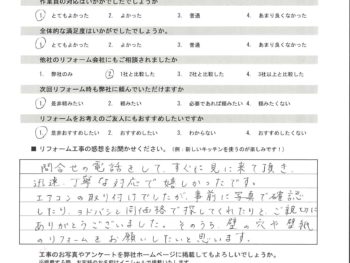 作業員の対応はいかがでしたでしょうか
1. とてもよかった 2. よかった 3. 普通 4. あまり良くなかった
全体的な満足度はいかがでしたでしょうか。
1. とてもよかった 2. よかった 3. 普通 4. あまり良くなかった
他社のリフォーム会社にもご相談されましたか
1. 弊社のみ 2. 1社と比較した 3. 2社と比較した 4. 3社以上と比較した
次回リフォーム時も弊社に頼んでいただけますか
1. 是非頼みたい 2. 頼みたい 3. 必要であれば頼みたい 4. 頼みたくない
リフォームをお考えのご友人にもおすすめしたいですか
1. 是非おすすめしたい 2. おすすめしたい 3. わからない 4. おすすめしたくない
■ リフォーム工事の感想をお聞かせください。(例:新しいキッチンを使うのが楽しみです!)
問合せの電話をして、すぐに見に来て頂き、
迅速、丁寧な対応で嬉しかったです。
エアコンの取り付けでしたが、事前に写真で確認
したり、ヨドバシと同価格で探してくれたりと、ご親切に
ありがとうございました。そのうち、壁の穴や壁紙
のリフォームをお願いしたいと思います。
工事のお写真やアンケートを弊社ホームページに掲載してもよろしいでしょうか。